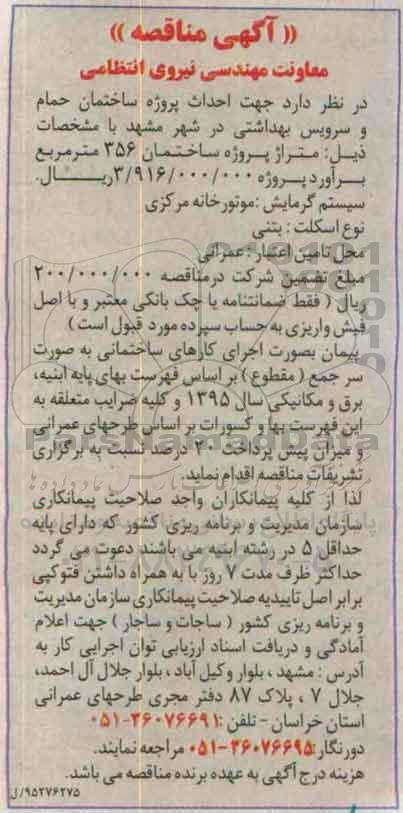 (( آگهی مناقصه ))
معاونت مهندسی نیروی انتظامی
در نظر دارد جهت احداث پروژه ساختمان حمام
و سرویس بهداشتی در شهر مشهد با مشخصات
ذیل: متراژ پروژه ساختمان ۳۵۶ مترمربع
برآورد پروژه ۳/۹۱۶/۰۰۰/۰۰۰ ریال.
سیستم گرمایش : موتورخانه مرکزی
نوع اسکلت : بتنی
محل تامین اعتبار : عمرانی
مبلغ تضمین شرکت درمناقصه ۲۰۰/۰۰۰/۰۰۰
ریال ( فقط ضمانتنامه یا چک بانکی معتبر و با اصل
فیش واریزی به حساب سپرده مورد قبول است )
پیمان بصورت اجرای کارهای ساختمانی به صورت
سر جمع ( مقطوع ) بر اساس فهرست بهای پایه ابنیه،
برق و مکانیکی سال ۱۳۹۵ و کلیه ضرایب متعلقه به
این فهرست بها و کسورات بر اساس طرحهای عمرانی
و میزان پیش پرداخت ۲۰ درصد نسبت به برگزاری
تشریفات مناقصه اقدام نماید.
لذا از کلیه پیمانکاران واجد صلاحیت پیمانکاری
سازمان مدیریت و برنامه ریزی کشور که دارای پایه
حداقل ۵ در رشته ابنیه می باشند دعوت می گردد
حداکثر ظرف مدت ۷ روز با به همراه داشتن فتوکپی
برابر اصل تاییدیه صلاحیت پیمانکاری سازمان مدیریت
و برنامه ریزی کشور ( ساجات و ساجار ) جهت اعلام
آمادگی و دریافت اسناد ارزیابی توان اجرایی کار به
آدرس : مشهد ، بلوار وکیل آباد ، بلوار جلال آل احمد،
جلال ۷ ، پلاک ۸۷ دفتر مجری طرحهای عمرانی
استان خراسان - تلفن : ۳۶۰۷۶۶۹۱-۰۵۱
دورنگار: ۳۶۰۷۶۶۹۵-۰۵۱ مراجعه نمایند.
هزینه درج آگهی به عهده برنده مناقصه می باشد.
۹۵۲۷۶۲۷۵/ل
ParsNamadData